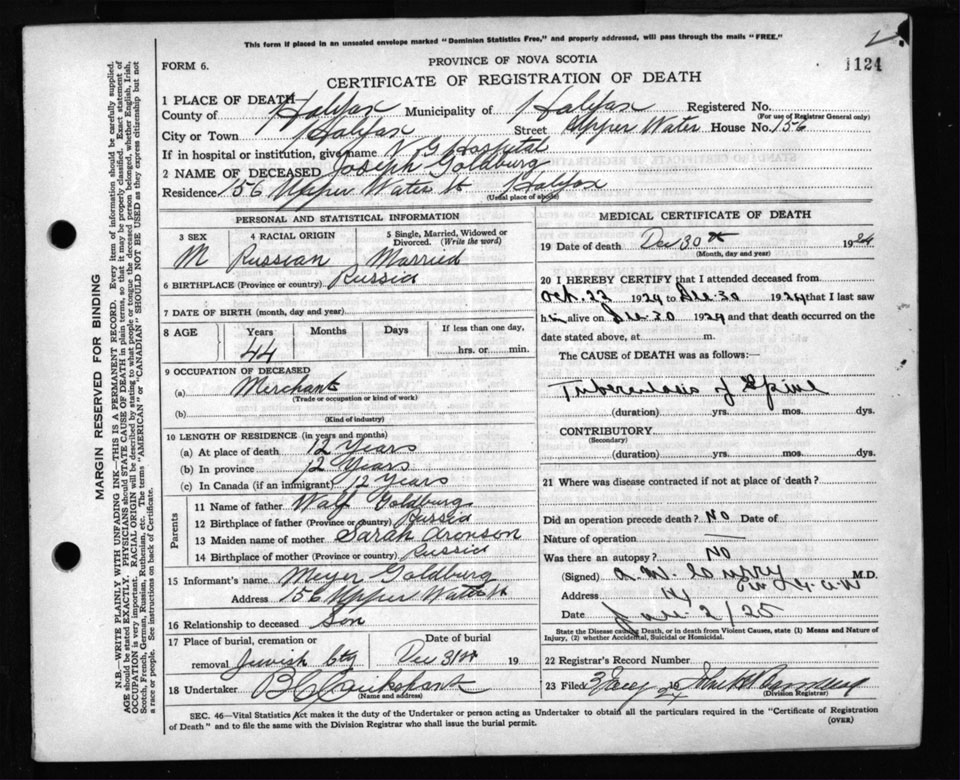 This form if placed in an unsealed envelope marked "Dominion Statistics Free," and properly addressed, will pass through the mails "FREE."
FORM 6.
PROVINCE OF NOVA SCOTIA
1124
CERTIFICATE OF REGISTRATION OF DEATH
1 PLACE OF DEATH
County of Halifax Municipality of Halifax Registered No.
(For use of Registrar General only)
City or Town Halifax Street Upper Water House No. 156
If in hospital or institution, give name V. G. Hospital
2 NAME OF DECEASED Joseph Goldburg
Residence 156 Upper Water St Halifax
(Usual place of abode)
PERSONAL AND STATISTICAL INFORMATION
3 SEX 4 RACIAL ORIGIN 5 Single, Married, Widowed or Divorced. (Write the word)
M Russian Married
6 BIRTHPLACE (Province or country) Russia
7 DATE OF BIRTH (month, day and year)
8 AGE Years Months Days If less than one day,
44 hrs. or min.
9 OCCUPATION OF DECEASED
(a) Merchant
(Trade or occupation or kind of work)
(b)
(Kind of industry)
10 LENGTH OF RESIDENCE (in years and months)
(a) At place of death 12 Years
(b) In province 12 Years
(c) In Canada (if an immigrant) 12 Years
Parents
11 Name of father Walf Goldburg
12 Birthplace of father (Province or country) Russia
13 Maiden name of mother Sarah Aronson
14 Birthplace of mother (Province or country) Russia
15 Informant's name Meyer Goldburg
Address 156 Upper Water St
16 Relationship to deceased Son
17 Place of burial, cremation or Date of burial
removal Jewish Dec 31st 19
18 Undertaker
(Name and address)
MEDICAL CERTIFICATE OF DEATH
19 Date of death Dec 30th 1924
(Month, day and year)
20 I HEREBY CERTIFY that I attended deceased from
Oct. 22 1924 to Dec. 30 1924 that I last saw
him alive on Dec. 30 1924 and that death occurred on
date stated above, at m.
The CAUSE of DEATH was as follows:
Tuberculosis of Spine
(duration) yrs. mos. dys.
CONTRIBUTORY
(Secondary)
(duration) yrs. mos. dys.
21 Where was disease contracted if not at place of death?
Did an operation precede death? No Date of
Nature of operation
Was there an autopsy? No
(Signed) A. M. M.D.
Address
Date Jan. 2/25
State the Disease causing Death, or in death from Violent Causes, state (1) Means and Nature of
Injury, (2) whether Accidental, Suicidal or Homicidal.
22 Registrar's Record Number
23 Filed 19
(Division Registrar)
SEC. 46—Vital Statistics Act makes it the duty of the Undertaker or person acting as Undertaker to obtain all the particulars required in the "Certificate of Registration
of Death" and to file the same with the Division Registrar who shall issue the burial permit.
(OVER)
MARGIN RESERVED FOR BINDING
N.B.—WRITE PLAINLY WITH UNFADING INK—THIS IS A PERMANENT RECORD. Every item of information should be carefully supplied.
AGE should be stated EXACTLY. PHYSICIANS should STATE CAUSE OF DEATH in plain terms, so that it may be properly classified. Exact statement of
OCCUPATION is very important. RACIAL ORIGIN will be described by stating to what people or tongue the deceased person belonged, whether English, Irish,
Scotch, French, German, Russian, Ruthenian, etc. The terms "AMERICAN" or "CANADIAN" SHOULD NOT BE USED as they express citizenship but not
a race or people. See instructions on back of Certificate.